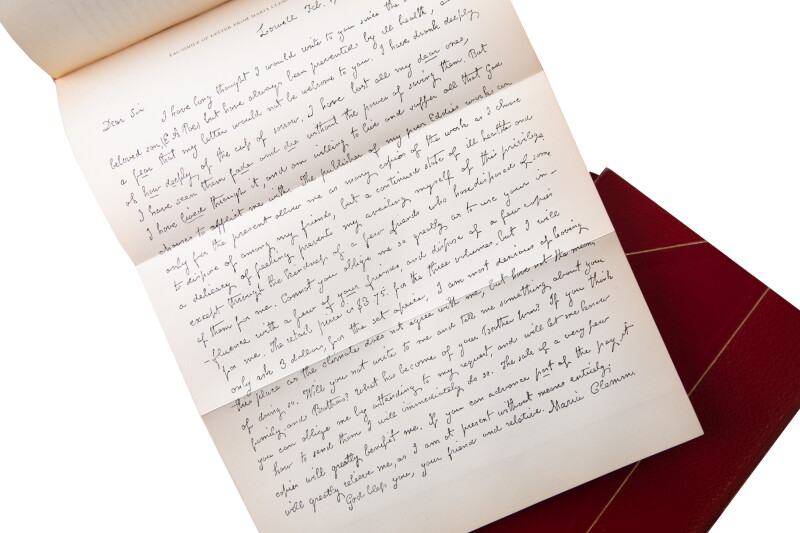 FACSIMILE OF LETTER FROM MARIA CLEMM
Lowell Feb.
Dear Sir I have long thought I would write to you since the
beloved son, (E A Poe) but have always been prevented by ill health,
a fear that my letter would not be welcome to you. I have drunk deeply
oh how deeply of the cup of sorrow. I have lost all my dear ones,
I have seen them fade and die without the power of saving them. But
I have lived through it, and am willing to live and suffer all that God
chooses to afflict me with. The publisher of my poor Eddies works can
only for the present allow me as many copies of the work as I chose
to dispose of among my friends, but a continued state of ill health and
a delicacy of feeling prevents my availing myself of this privilege
except through the kindness of a few friends who have disposed of some
of them for me. Cannot you oblige me so greatly as to use your in-
-fluence with a few of your friends, and dispose of a few copies
for me. The retail price is $3.75. for the three volumes, but I will
only ask 3 dollars, for the set apiece, I am most desirous of leaving
this place as the climate does not agree with me, but have not the means
of doing so. Will you not write to me and tell me something about your
family, and Brothers? What has become of your Brother Wm? If you think
you can oblige me by attending to my request, and will let me know
how to send them I will immediately do so. The sale of a very few
copies will greatly benefit me. If you can advance part of the pay, it
will greatly relieve me, as I am at present without means entirely.
God bless you, your friend and relative. Maria Clemm.